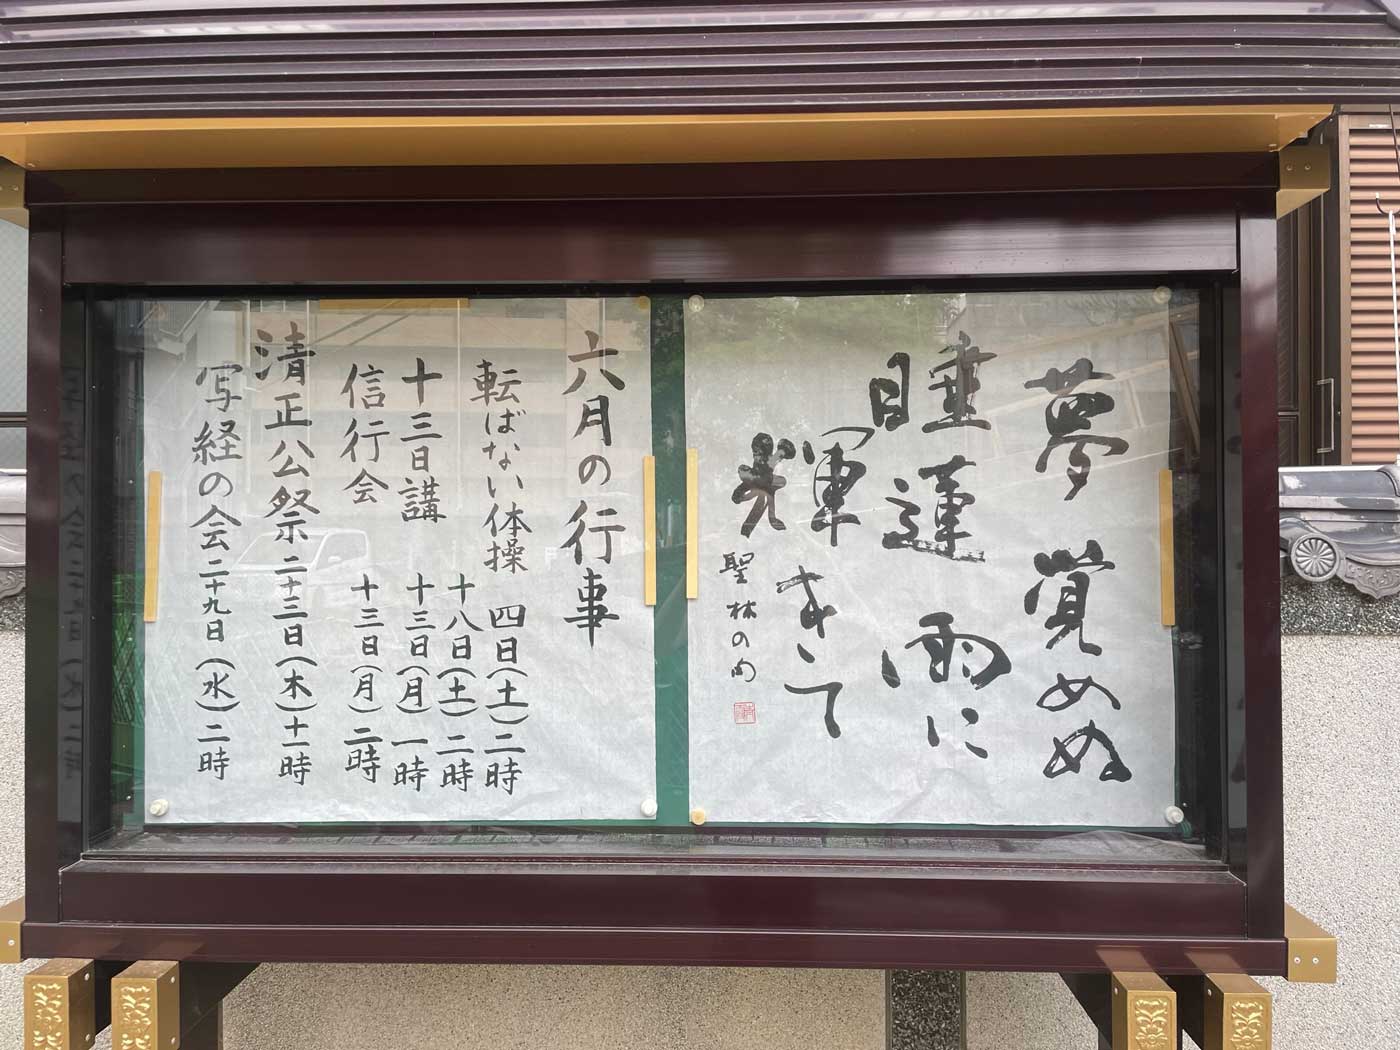 夢覚めぬ
睡蓮雨に
輝きて
聖林の句
六月の行事
転ばない体操 四日(土)二時
十八日(土)二時
十三日講 十三日(月)一時
信行会 十三日(月)二時
清正公祭 二十三日(木)十一時
写経の会 二十九日(水)二時